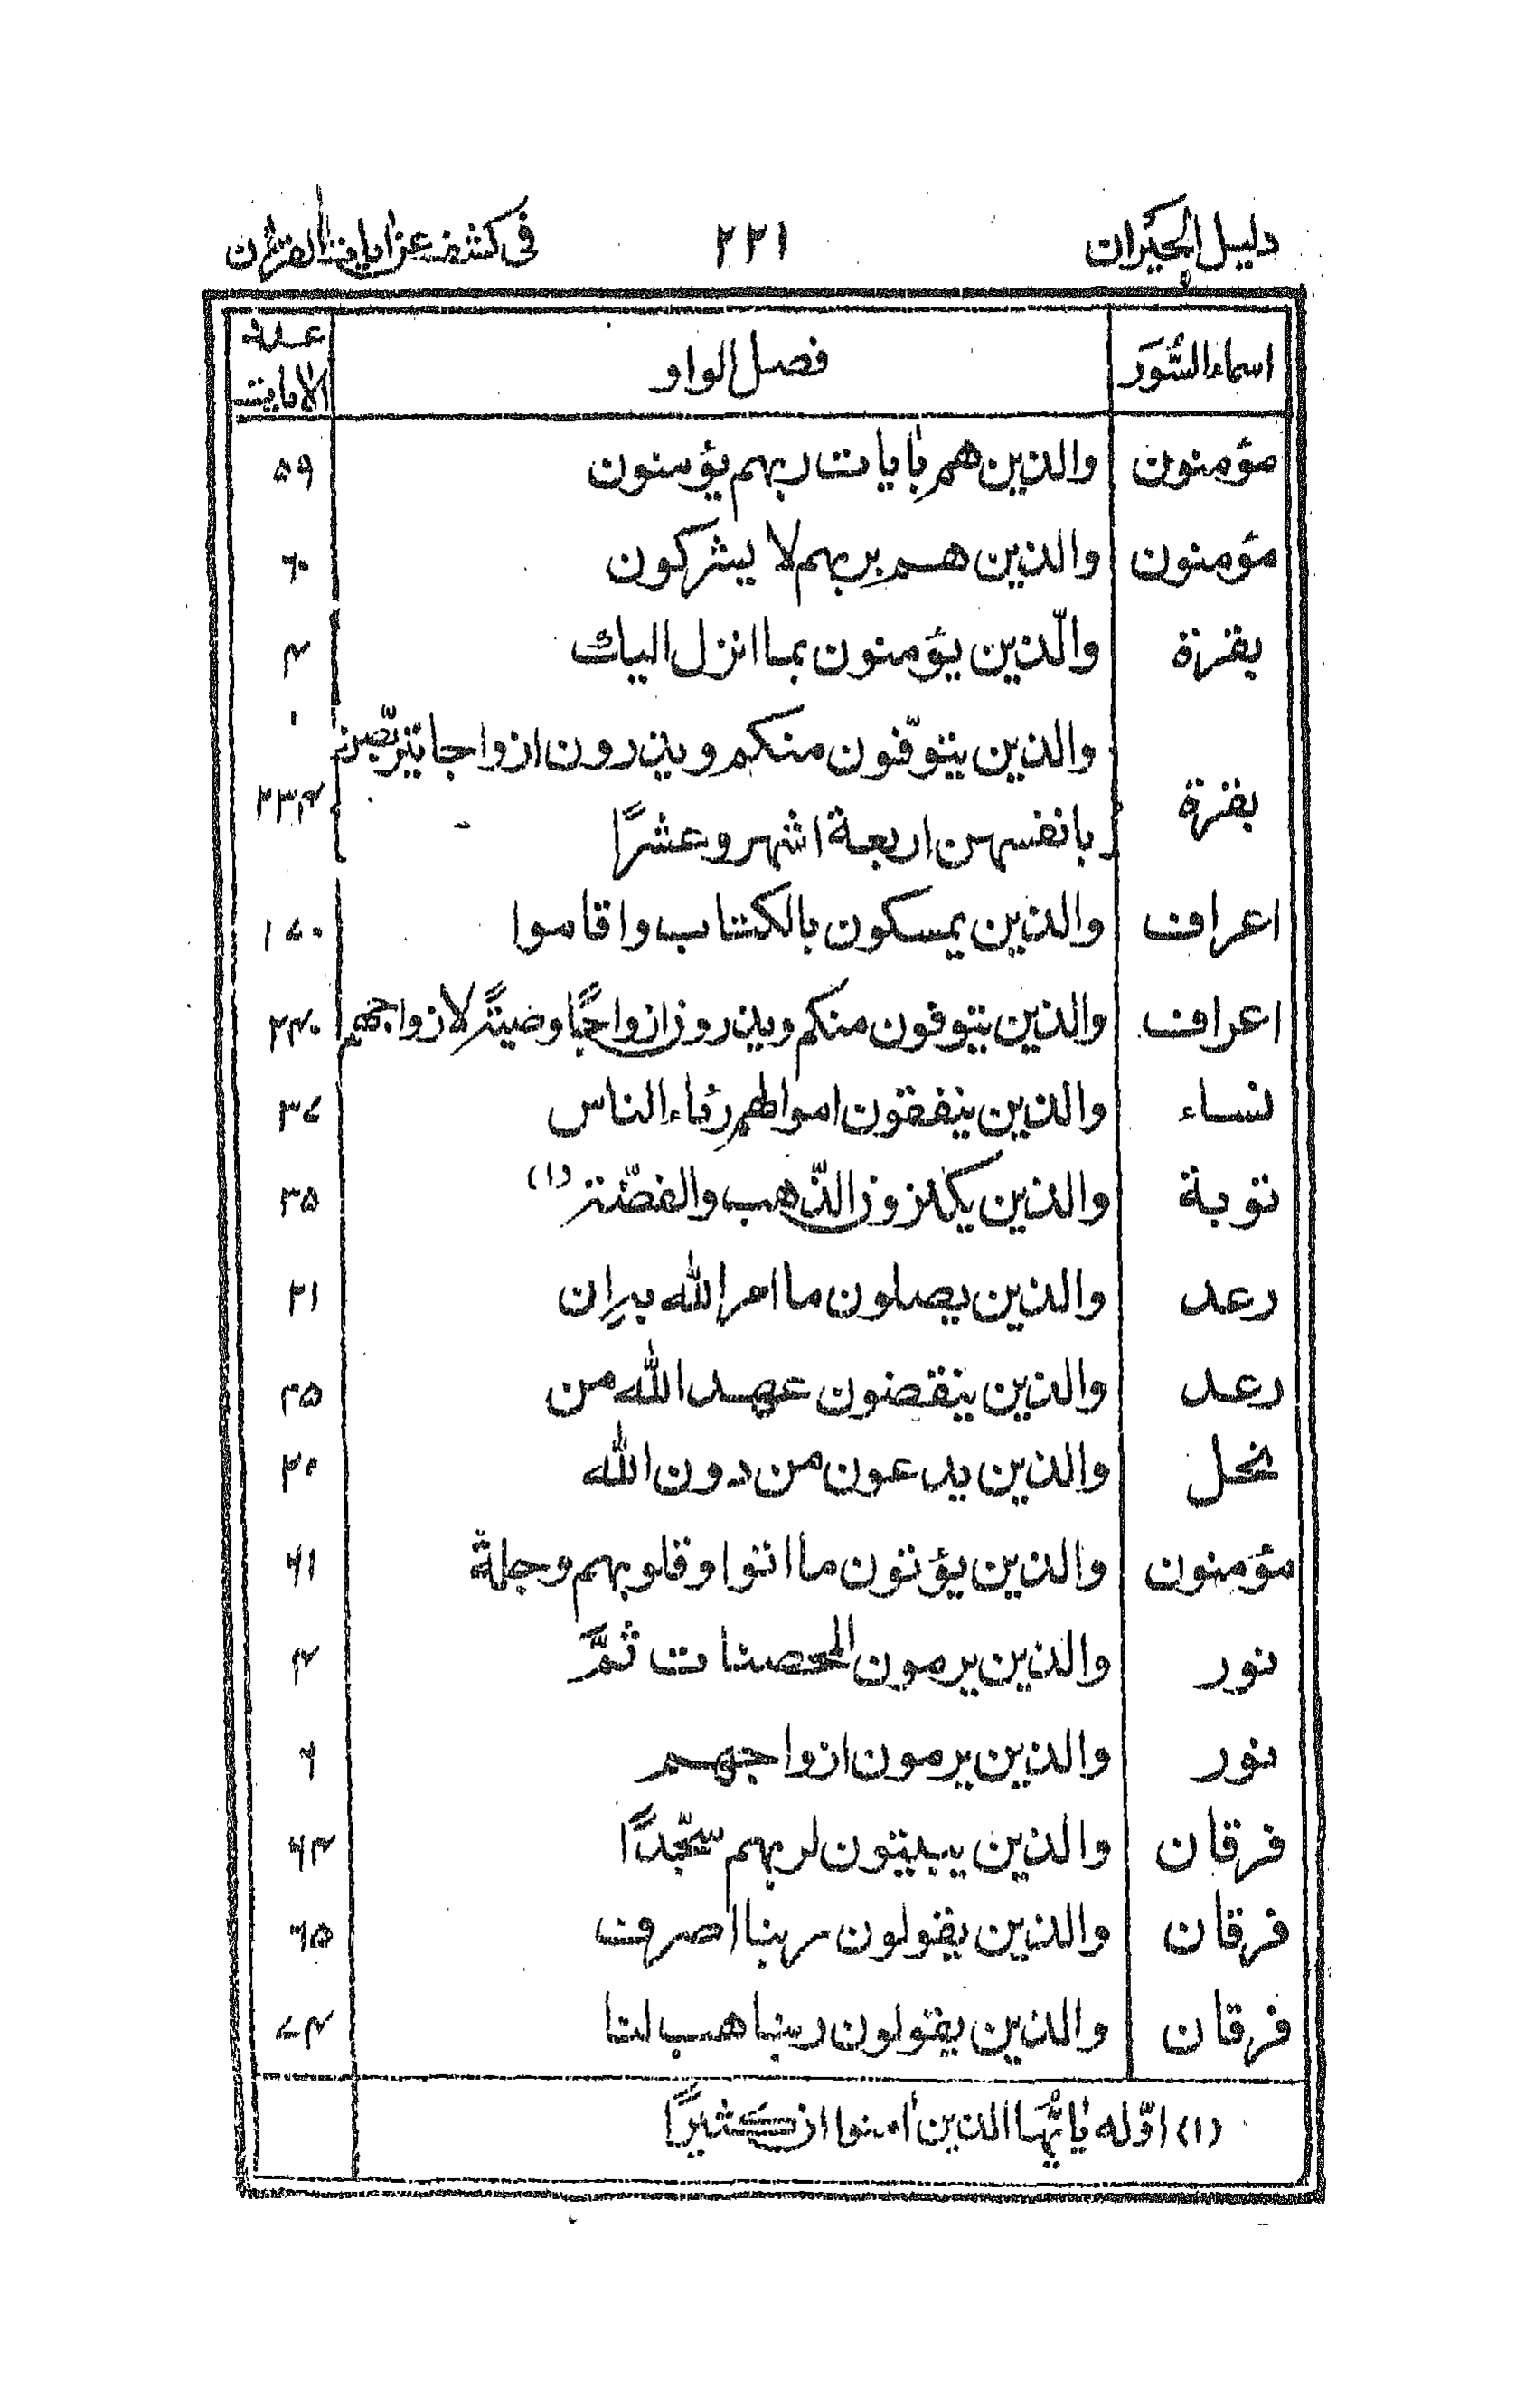 دليل الحيران ٢٢١ فى كشف عن ايات القران
اسماء السُّوَر فصل الواو عدة الايات
مؤمنون والذين هم بٰايات ربهم يؤمنون ٥٩
مؤمنون والذين هم بربهم لا يشركون ٦٠
بقرة والّذين يؤمنون بما انزل اليك ۴
والذين يتوفّون منكم ويذرون ازواجا يتربّصن
بقرة ٢٣۴
بانفسهن اربعة اشهر وعشرًا
اعراف والذين يمسكون بالكتاب واقاموا ١٧٠
اعراف والذين يتوفون منكم ويذرون ازواجًا وصيةً لازواجهم ٢۴٠
نساء والذين ينفقون اموالهم رئاء الناس ٣٧
توبة والذين يكنزون الذّهب والفضّة (١) ٣٥
رعد والذين يصلون ما امر الله به ان ٢١
رعد والذين ينقضون عهد الله من ٢٥
نحل والذين يدعون من دون الله ٢٠
مؤمنون والذين يؤتون ما اتوا وقلوبهم وجلة ٦١
نور والذين يرمون المحصنات ثمَّ ۴
نور والذين يرمون ازواجهم ٦
فرقان والذين يبيتون لربهم سجّدًا ٦۴
فرقان والذين يقولون ربنا اصرف ٦٥
فرقان والذين يقولون ربنا هب لنا ٧۴
(١) اوّله يٰايّها الذين اٰمنوا ان كثيرًا